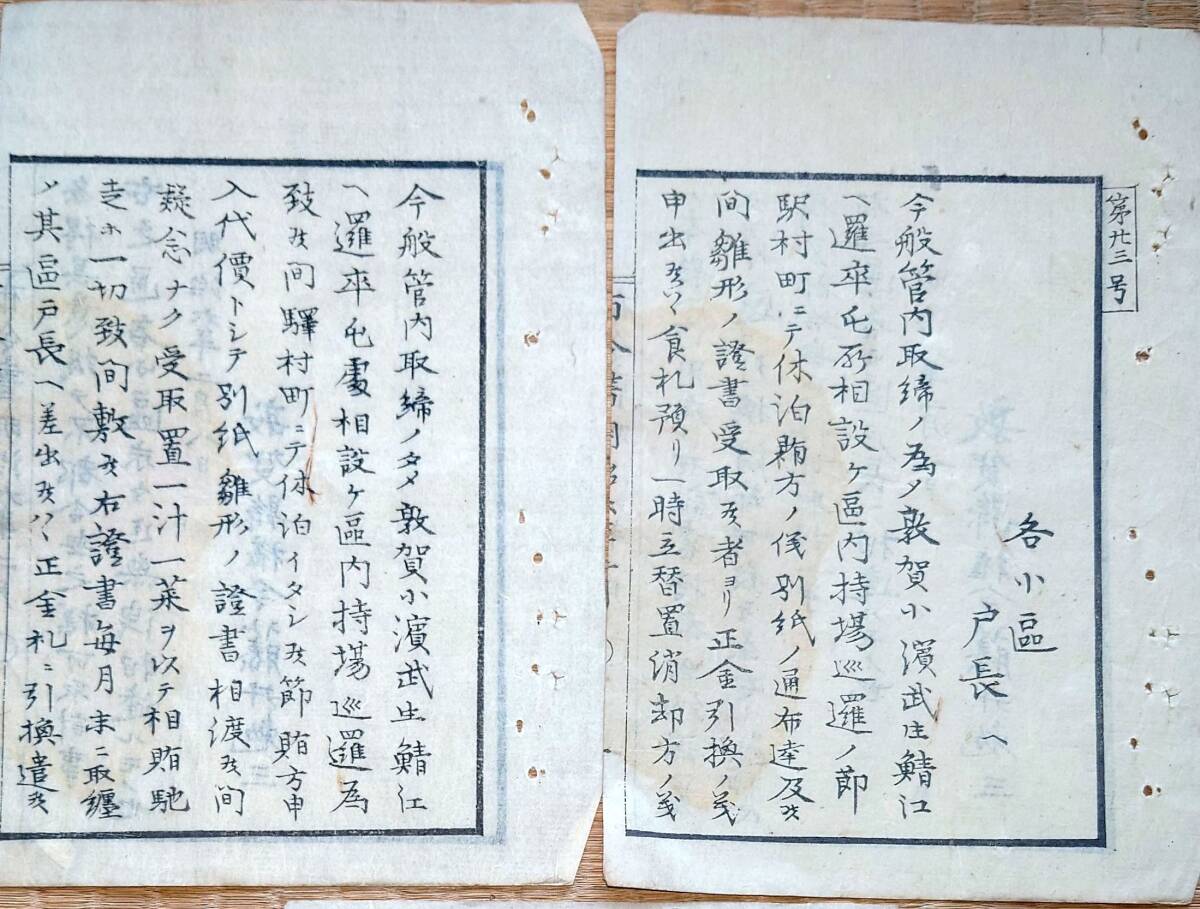 第廿三号
各小區
戸長へ
今般管内取締ノ為メ敦賀小濵武生鯖江
ヘ邏卒屯所相設ケ區内持場巡邏ノ節
駅村町ニテ休泊賄方ノ儀別紙ノ通布達及候
間雛形ノ證書受取候者ヨリ正金引換ノ義
申出候ハヽ食札預リ一時立替置消却方ノ義
今般管内取締ノタメ敦賀小濵武生鯖江
ヘ邏卒屯處相設ケ區内持場巡邏為
致候間驛村町ニテ休泊イタシ候節賄方申
入代價トシテ別紙雛形ノ證書相渡候間
疑念ナク受取置一汁一菜ヲ以テ相賄馳
走ホ一切致間敷候右證書毎月末ニ取纒
メ其區戸長ヘ差出候ハヽ正金札ニ引換遣候